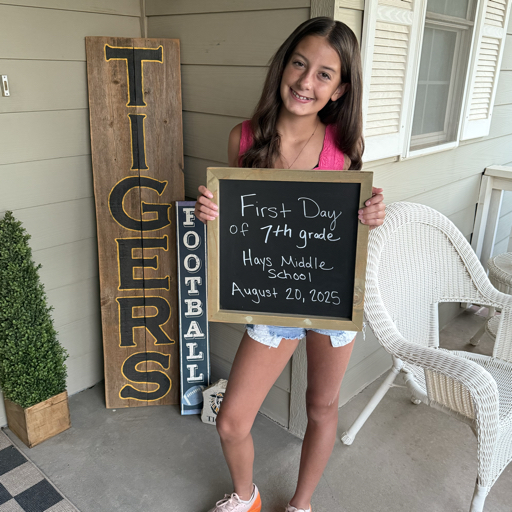 TIGERS
FOOTBALL
First Day
of 7th grade
Hays Middle
School
August 20, 2025